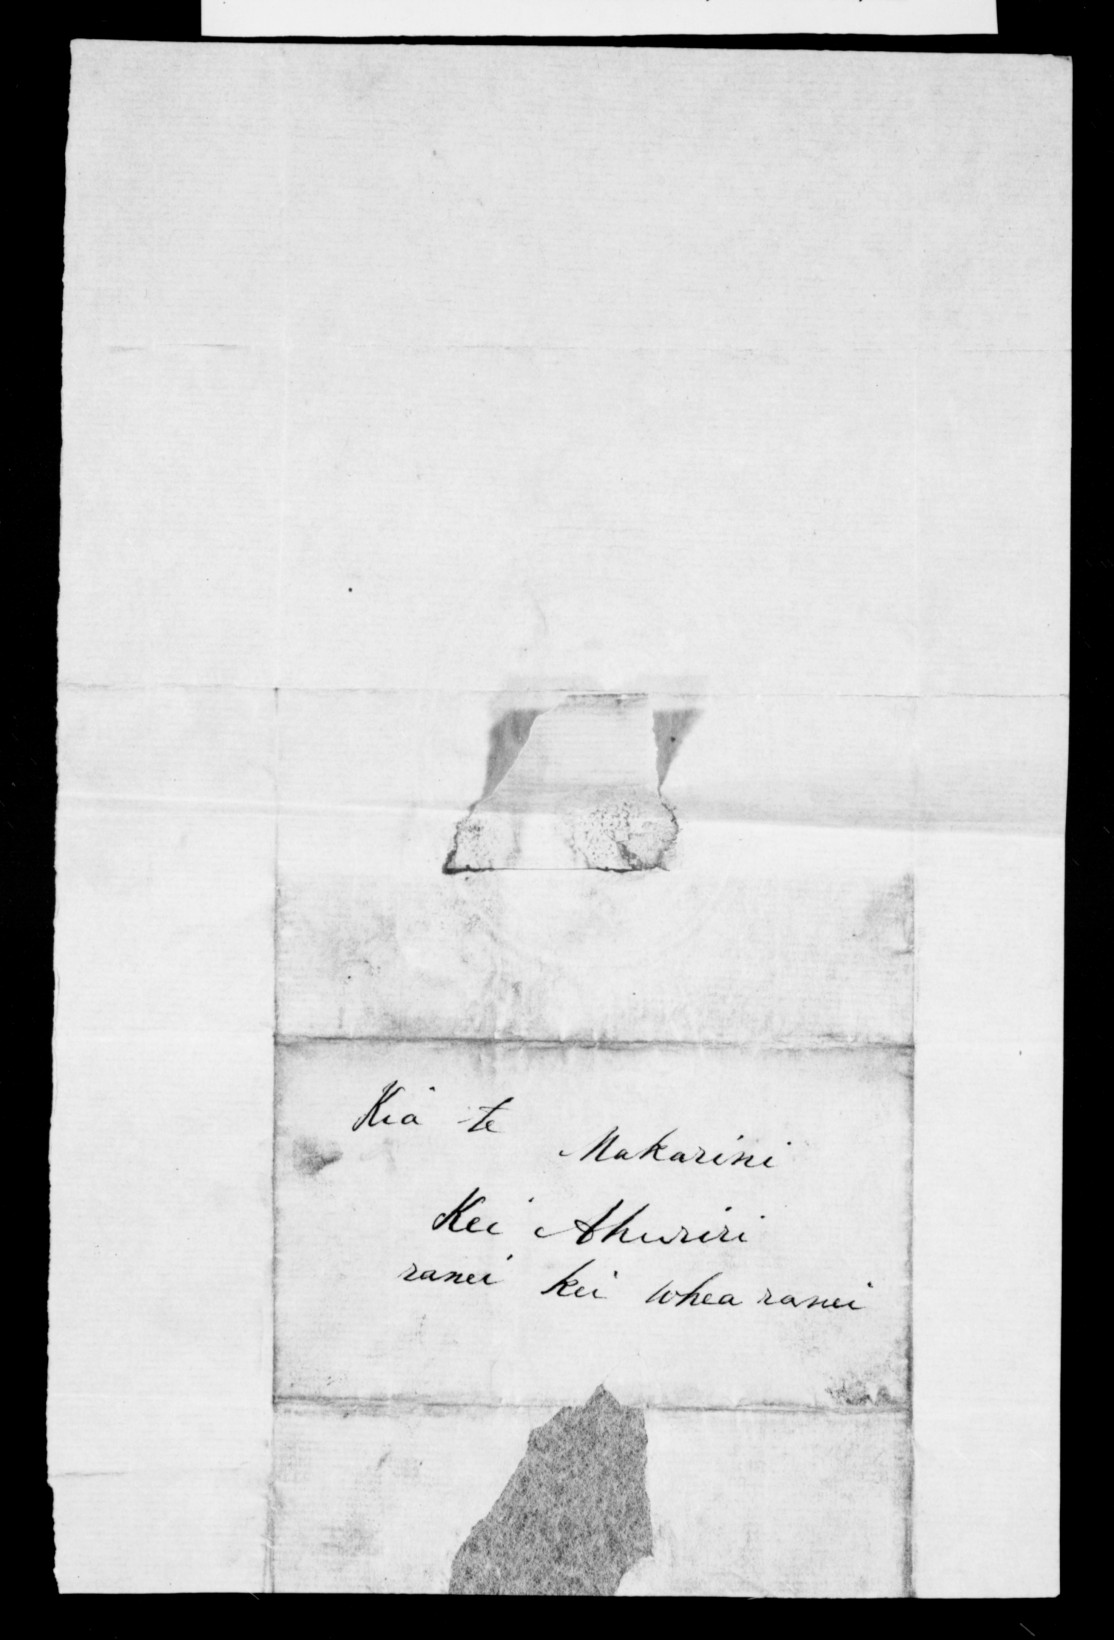 Kia te
Makarini
Kei Ahuriri
ranei kei whea ranei